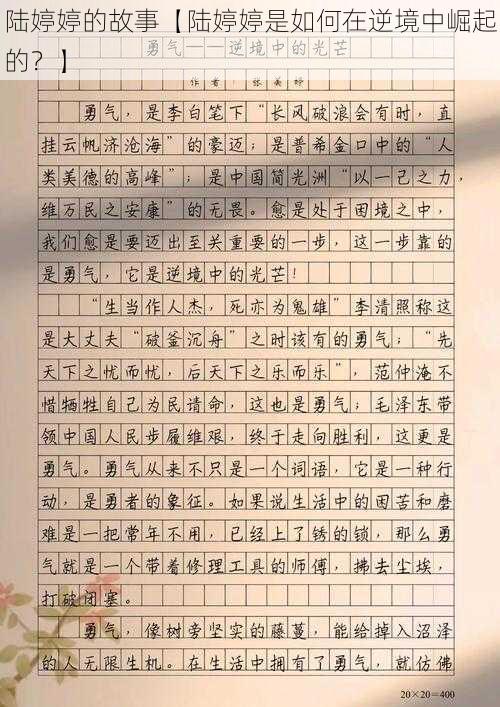 陆婷婷的故事【陆婷婷是如何在逆境中崛起
的？】
勇气——逆境中的光芒
作者：张美婷
勇气，是李白笔下“长风破浪会有时，直
挂云帆济沧海”的豪迈；是普希金口中的“人
类美德的高峰”；是中国简光洲“以一己之力，
维万民之安康”的无畏。愈是处于困境之中，
我们愈是要迈出至关重要的一步，这一步靠的
是勇气，它是逆境中的光芒！
“生当作人杰，死亦为鬼雄”李清照称这
是大丈夫“破釜沉舟”之时该有的勇气；“先
天下之忧而忧，后天下之乐而乐”，范仲淹不
惜牺牲自己为民请命，这也是勇气；毛泽东带
领中国人民步履维艰，终于走向胜利，这更是
勇气。勇气从来不只是一个词语，它是一种行
动，是勇者的象征。如果说生活中的困苦和磨
难是一把常年不用，已经上了锈的锁，那么勇
气就是一个带着修理工具的师傅，拂去尘埃，
打破闭塞。
勇气，像树旁坚实的藤蔓，能给掉入沼泽
的人无限生机。在生活中拥有了勇气，就仿佛
20×20=400